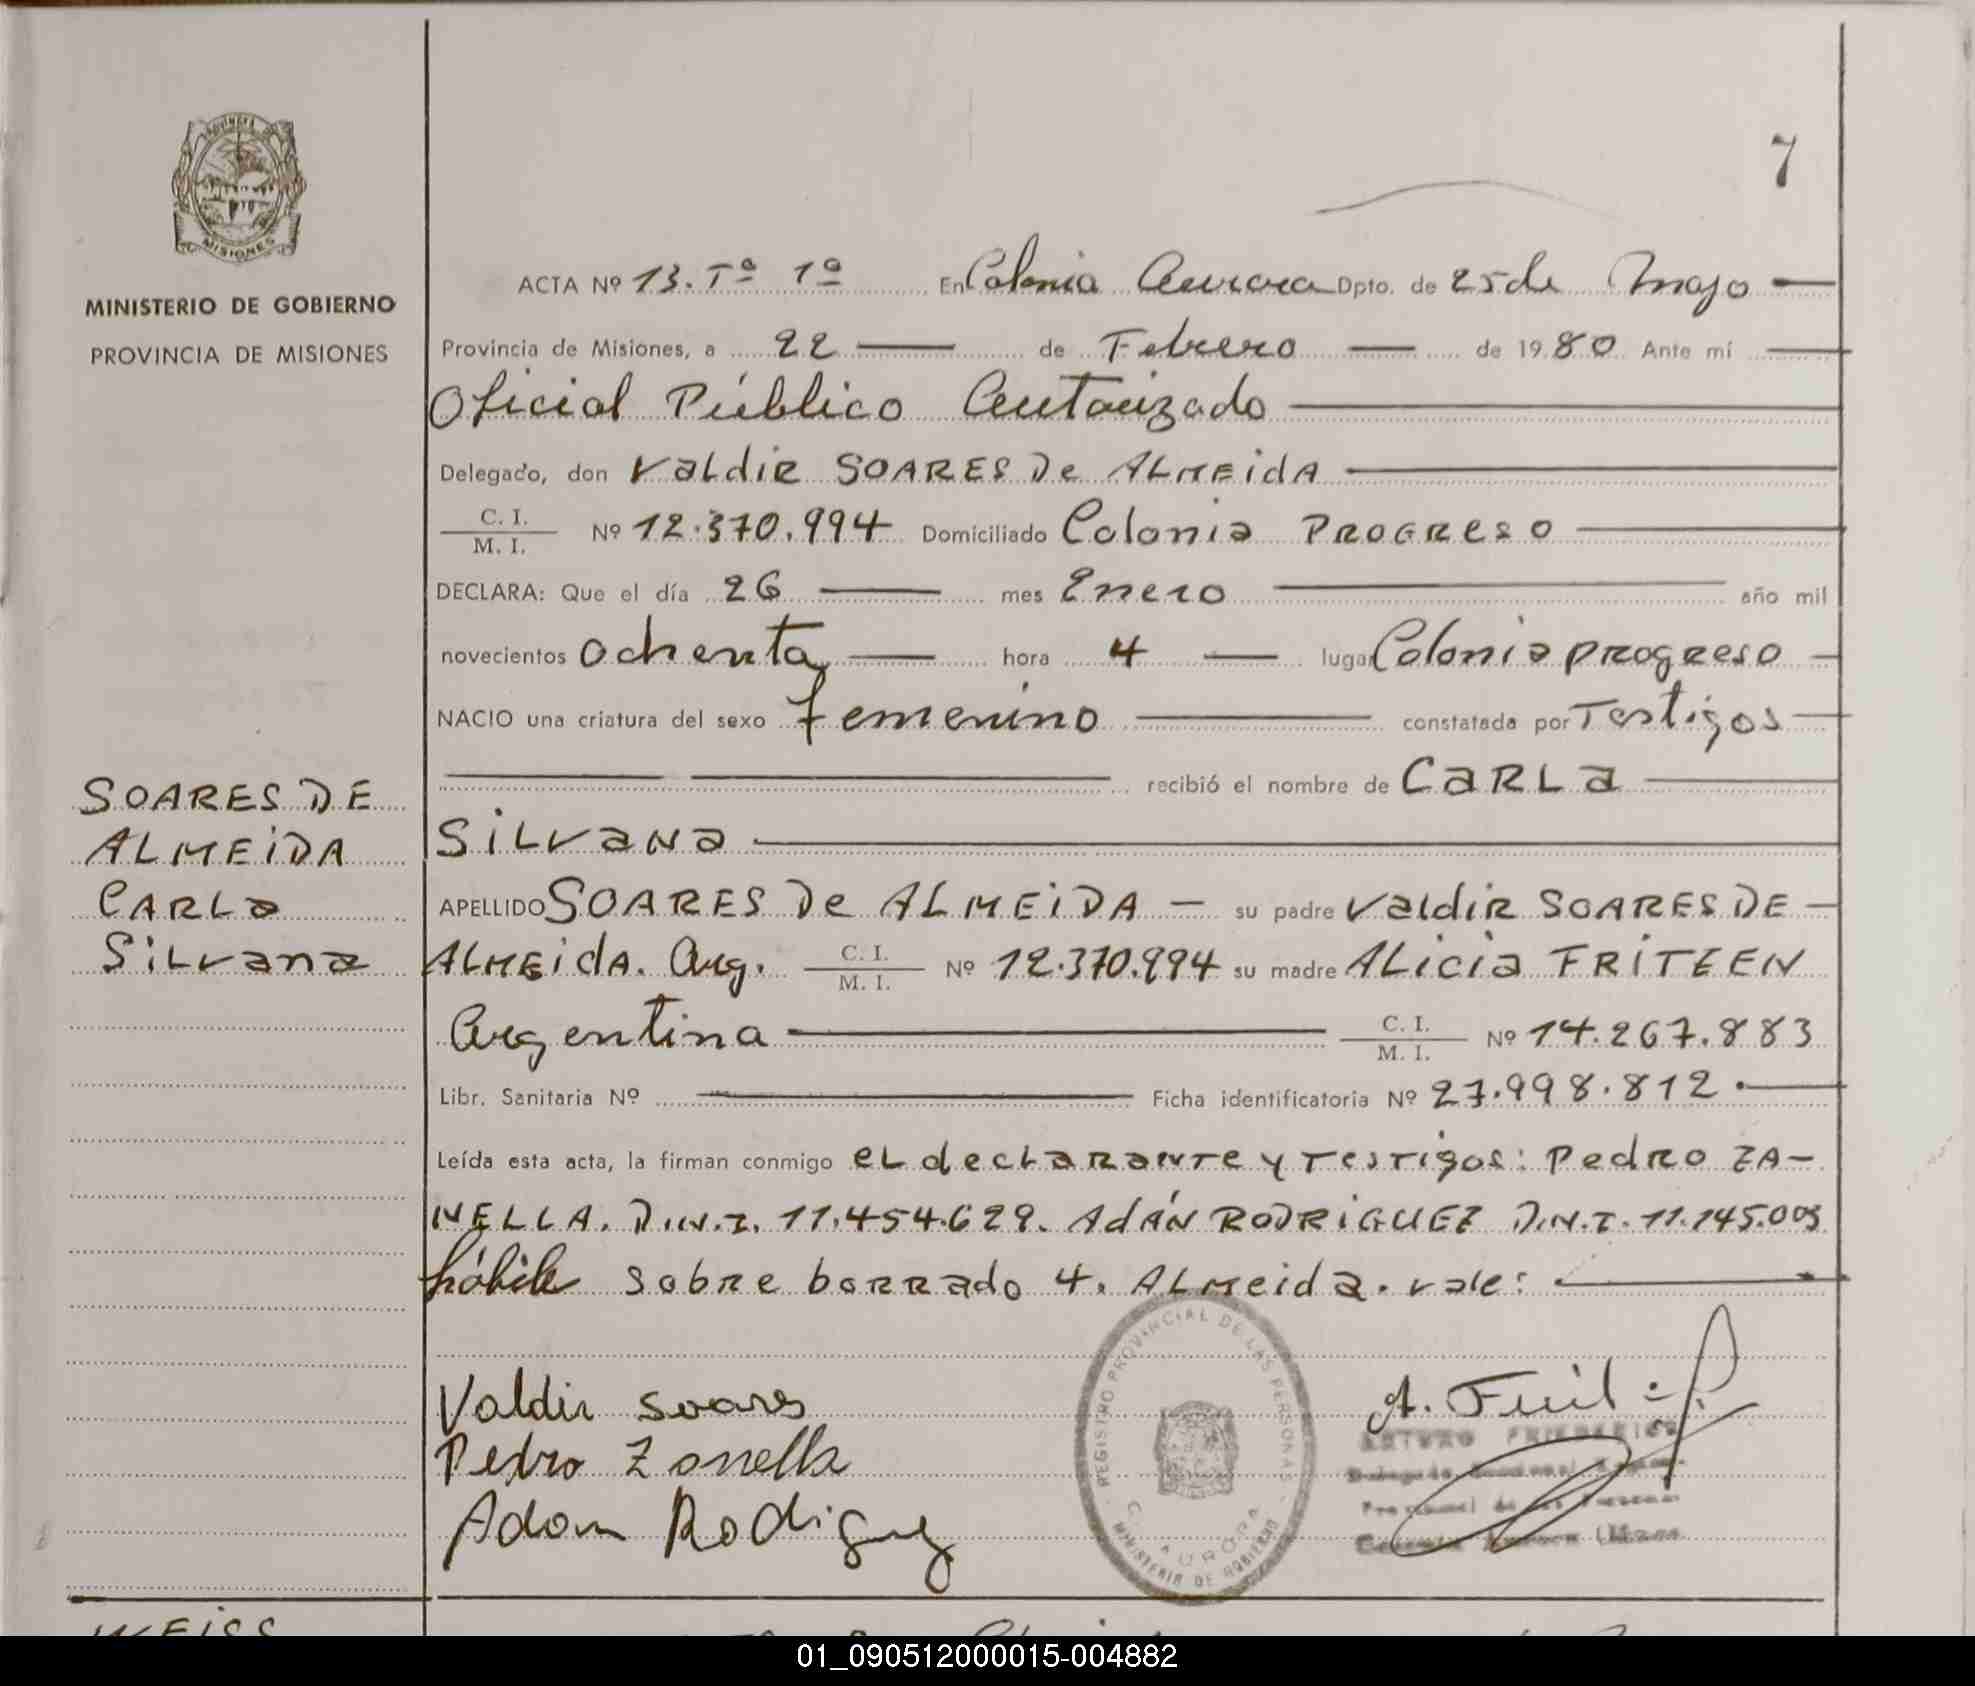 7
PROVINCIA DE
MISIONES
MINISTERIO DE GOBIERNO
PROVINCIA DE MISIONES
ACTA Nº 13. Tº 1º En Colonia Aurora Dpto. de 25 de Mayo
Provincia de Misiones, a 22 de Febrero de 1980 Ante mí
Oficial Público Autorizado
Delegado, don Valdir SOARES De ALMEIDA
C. I.
M. I. Nº 12.370.994 Domiciliado Colonia PROGReso
DECLARA: Que el día 26 mes Enero año mil
novecientos ochenta hora 4 lugar Colonia progreso
NACIO una criatura del sexo femenino constatada por Testigos
recibió el nombre de CaRLa
SiLvaNa
SOARES DE
ALMEiDA
CARLa
SiLvana
APELLIDO SOARES De ALMEiDA su padre Valdir SOARES DE
ALMEidA. Arg. C. I.
M. I. Nº 12.370.994 su madre ALicia FRiTEEN
Argentina C. I.
M. I. Nº 14.267.883
Libr. Sanitaria Nº Ficha identificatoria Nº 27.998.812.
Leída esta acta, la firman conmigo eL decLaRaNTe y TesTigos: Pedro ZA-
NELLA. D.N.I. 11.454.629. AdÁN RODRiGUEZ D.N.I. 11.145.009
hábile sobre borrado 4. ALmeida. vale:
Valdir soares
Pedro Zanella
Adam Rodiguez
REGISTRO PROVINCIAL DE LAS PERSONAS
C. AURORA
MINISTERIO DE GOBIERNO
ARTURO
WEiSS
01_090512000015-004882